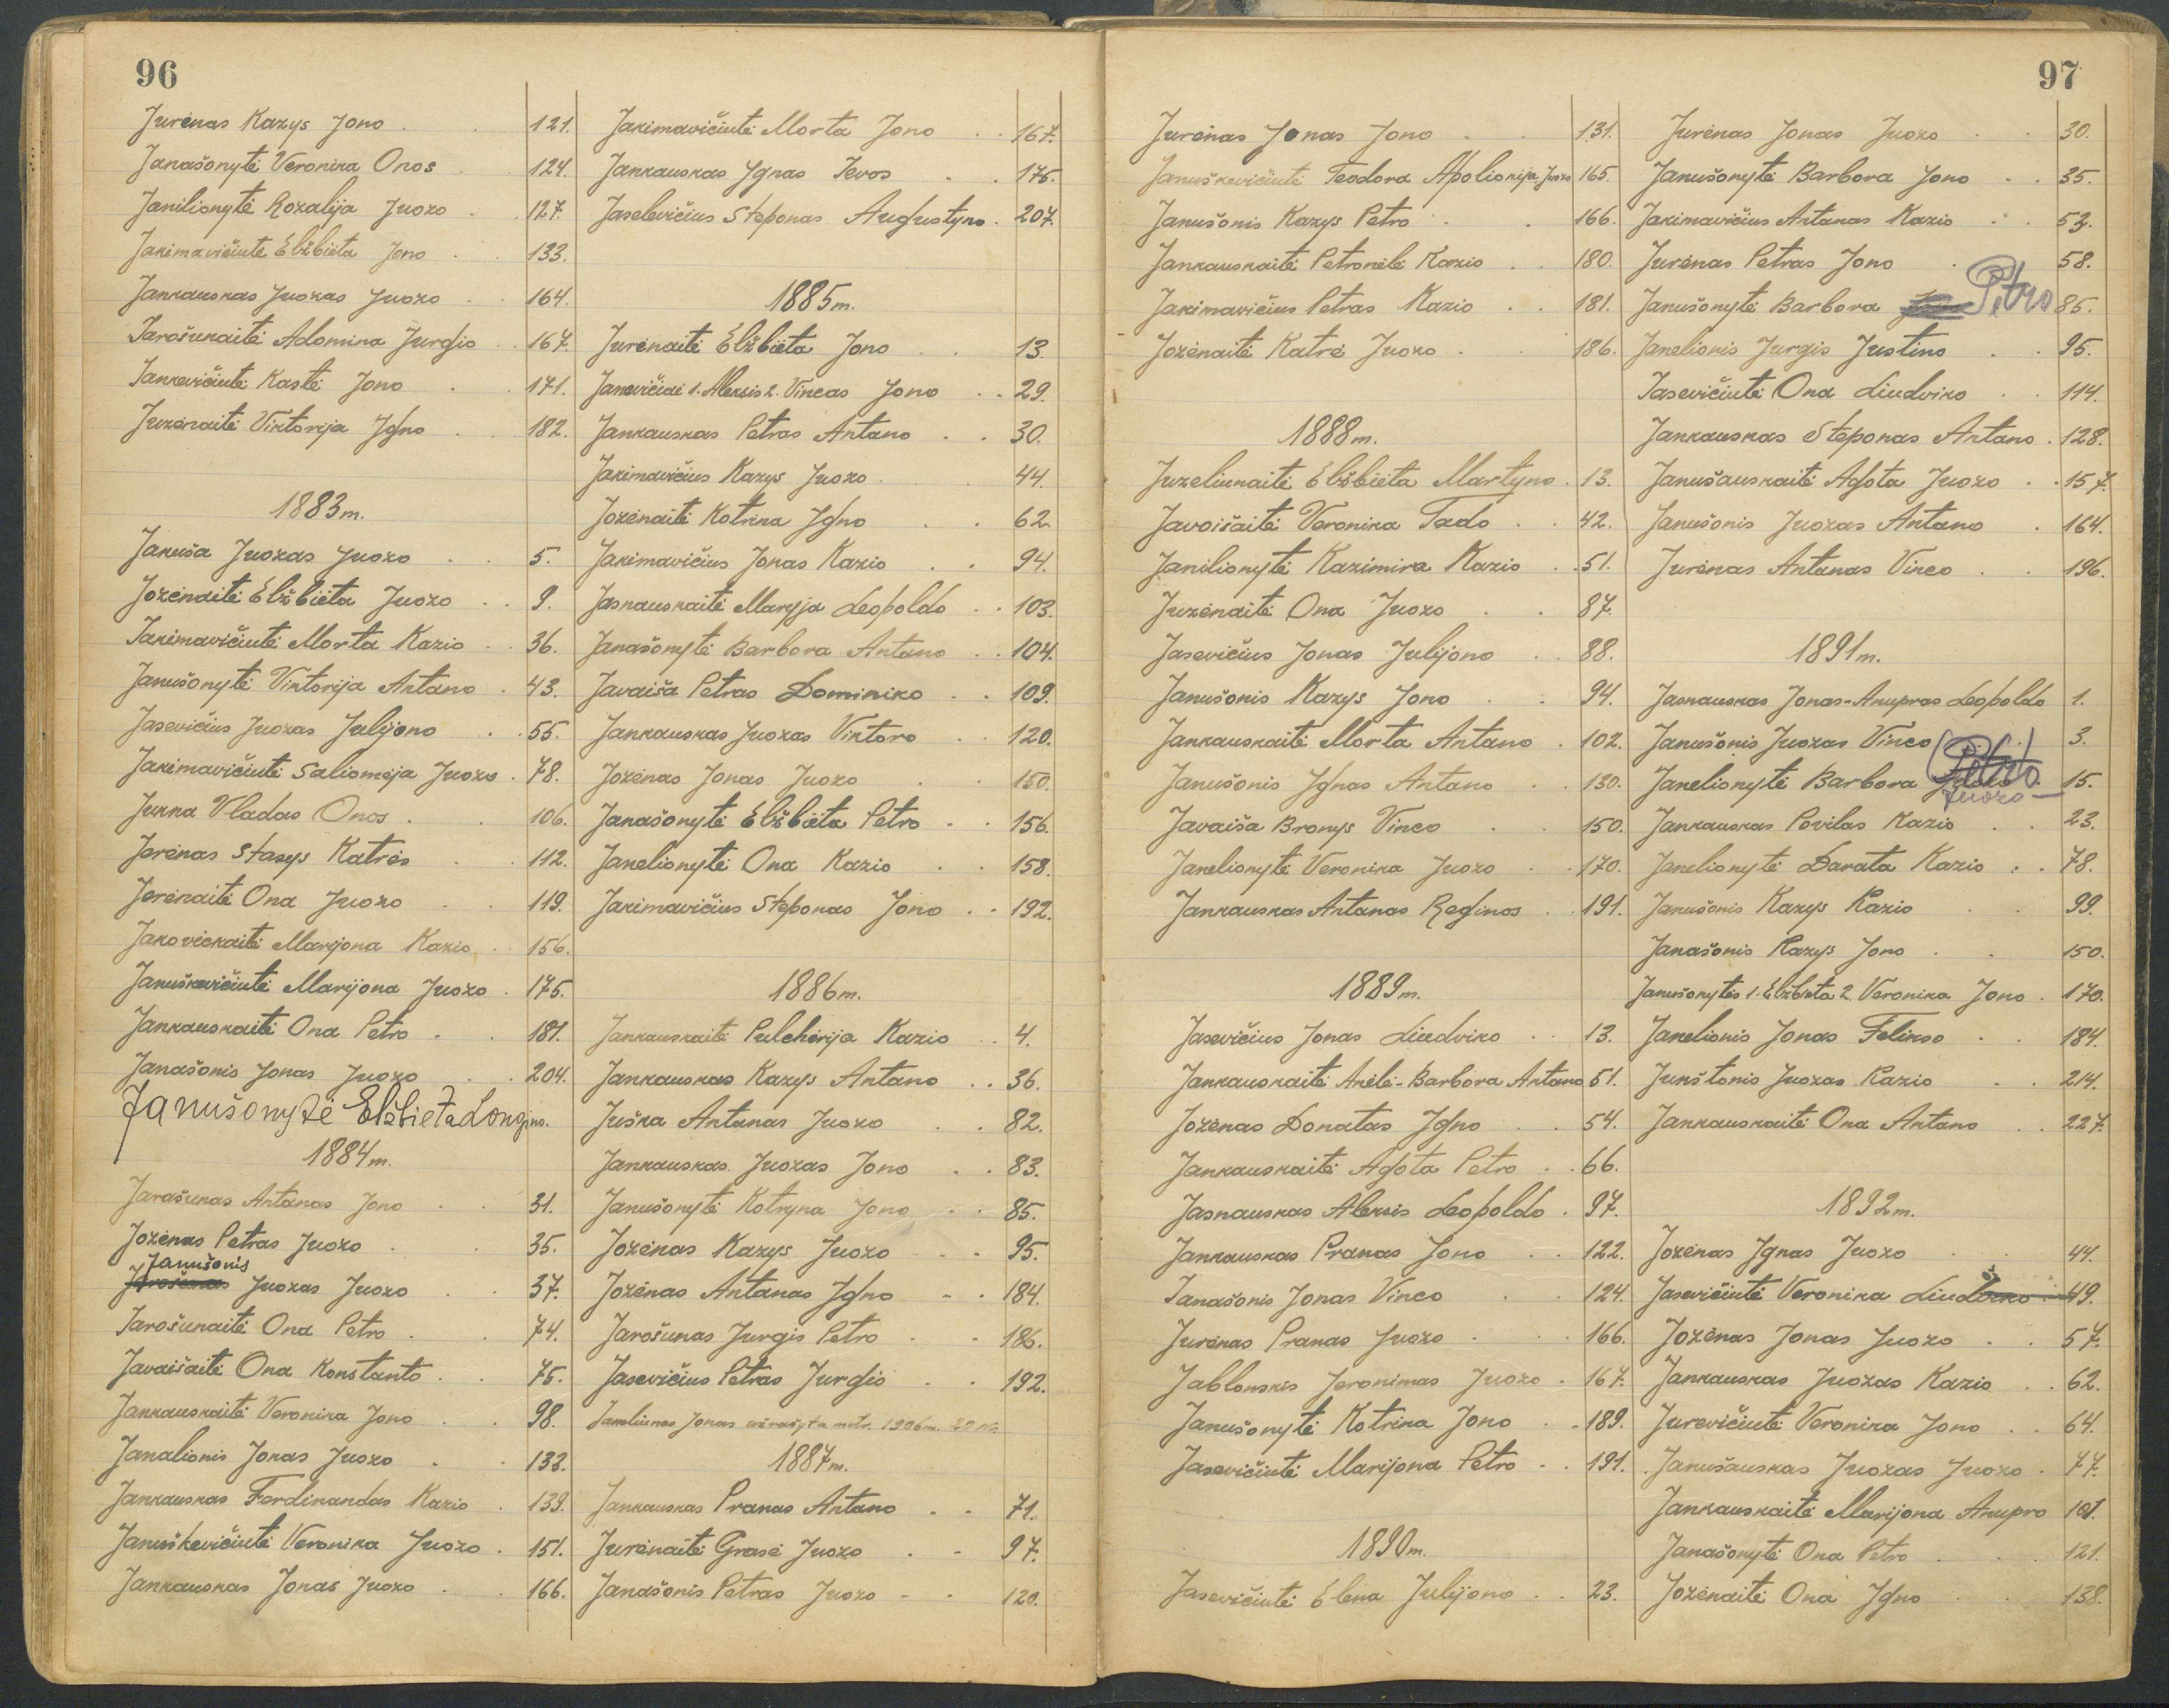 96
Jurėnas Kazys Jono 121.
Janašonytė Veronika Onos 124.
Janilionytė Rozalija Juozo 127.
Jakimavičiutė Elžbieta Jono 133.
Jankauskas Juozas Juozo 164.
Jarošunaitė Adomina Jurgio 167.
Jankevičiutė Kastė Jono 171.
Juzėnaitė Viktorija Igno 182.
1883 m.
Januša Juozas Juozo 5.
Jozėnaitė Elžbieta Juozo 9.
Jakimavičiutė Morta Kazio 36.
Janušonytė Viktorija Antano 43.
Jasevičius Juozas Julijono 55.
Jakimavičiutė Saliomėja Juozo 78.
Jukna Vladas Onos 106.
Jerėnas Stasys Katrės 112.
Jerėnaitė Ona Juozo 119.
Jakovickaitė Marijona Kazio 156.
Januškevičiutė Marijona Juozo 175.
Jankauskaitė Ona Petro 181.
Janašonis Jonas Juozo 204.
Janušonytė Elžbieta Longino.
1884 m.
Jarašunas Antanas Jono 31.
Jozėnas Petras Juozo 35.
Janušonis
Juozas Juozo 37.
Jarošunaitė Ona Petro 74.
Javaišaitė Ona Konstanto 75.
Jankauskaitė Veronika Jono 98.
Janalionis Jonas Juozo 133.
Jankauskas Ferdinandas Kazio 139.
Januškevičiutė Veronika Juozo 151.
Jankauskas Jonas Juozo 166.
Jakimavičiutė Morta Jono 167.
Jankauskas Ignas Ievos 175.
Jaselevičius Steponas Augustyno 207.
1885 m.
Jurėnaitė Elžbieta Jono 13.
Janevičiai 1. Aleksis 2. Vincas Jono 29.
Jankauskas Petras Antano 30.
Jakimavičius Kazys Juozo 44.
Jozėnaitė Kotrina Igno 62.
Jakimavičius Jonas Kazio 94.
Jasnauskaitė Maryja Leopoldo 103.
Janašonytė Barbora Antano 104.
Javaiša Petras Dominiko 109.
Jankauskas Juozas Viktoro 120.
Jozėnas Jonas Juozo 150.
Janašonytė Elžbieta Petro 156.
Janelionytė Ona Kazio 158.
Jakimavičius Steponas Jono 192.
1886 m.
Jankauskaitė Pulcherija Kazio 4.
Jankauskas Kazys Antano 36.
Juška Antanas Juozo 82.
Jankauskas Juozas Jono 83.
Janušonytė Kotryna Jono 85.
Jozėnas Kazys Juozo 95.
Jozėnas Antanas Igno 184.
Jarošunas Jurgis Petro 186.
Jasevičius Petras Jurgio 192.
Jonas 1906 m.
1887 m.
Jankauskas Pranas Antano 71.
Jurėnaitė Grasė Juozo 97.
Janašonis Petras Juozo 120.
97
Jurėnas Jonas Jono 131.
Januškevičiutė Teodora Apolionija Juozo 165.
Janušonis Kazys Petro 166.
Jankauskaitė Petronėlė Kazio 180.
Jakimavičius Petras Kazio 181.
Jozėnaitė Katrė Juozo 186.
1888 m.
Juzeliunaitė Elžbieta Martyno 13.
Javoišaitė Veronika Tado 42.
Janilionytė Kazimira Kazio 51.
Juzėnaitė Ona Juozo 87.
Jasevičius Jonas Julijono 88.
Janušonis Kazys Jono 94.
Jankauskaitė Morta Antano 102.
Janušonis Ignas Antano 130.
Javaiša Bronys Vinco 150.
Janelionytė Veronika Juozo 170.
Jankauskas Antanas Reginos 191.
1889 m.
Jasevičius Jonas Liudviko 13.
Jankauskaitė Anėlė-Barbora Antano 51.
Jozėnas Donatas Igno 54.
Jankauskaitė Agota Petro 66.
Jasnauskas Aleksis Leopoldo 97.
Jankauskas Pranas Jono 122.
Janašonis Jonas Vinco 124.
Jurėnas Pranas Juozo 166.
Jablonskis Jeronimas Juozo 167.
Janušonytė Kotrina Jono 189.
Jasevičiutė Marijona Petro 191.
1890 m.
Jasevičiutė Elena Julijono 23.
Jurėnas Jonas Juozo 30.
Janušonytė Barbora Jono 35.
Jakimavičius Antanas Kazio 52.
Jurėnas Petras Jono 58.
Janušonytė Barbora Petro 85.
Janelionis Jurgis Justino 95.
Jasevičiutė Ona Liudviko 114.
Jankauskas Steponas Antano 128.
Janušauskaitė Agota Juozo 157.
Janušonis Juozas Antano 164.
Jurėnas Antanas Vinco 196.
1891 m.
Jasnauskas Jonas-Anupras Leopoldo 1.
Janušonis Juozas Vinco 3.
(Petro)
Janelionytė Barbora 15.
Juozo
Jankauskas Povilas Kazio 23.
Janelionytė Darata Kazio 78.
Janušonis Kazys Kazio 99.
Janašonis Kazys Jono 150.
Janušonytės 1. Elžbieta 2. Veronika Jono 170.
Janelionis Jonas Felikso 184.
Junštonis Juozas Kazio 214.
Jankauskaitė Ona Antano 227.
1892 m.
Jozėnas Ignas Juozo 44.
Jasevičiutė Veronika Liudviko 49.
Jozėnas Jonas Juozo 57.
Jankauskas Juozas Kazio 62.
Jurevičiutė Veronika Jono 64.
Janušauskas Juozas Juozo 77.
Jankauskaitė Marijona Anupro 101.
Janašonytė Ona Petro 121.
Jozėnaitė Ona Igno 138.